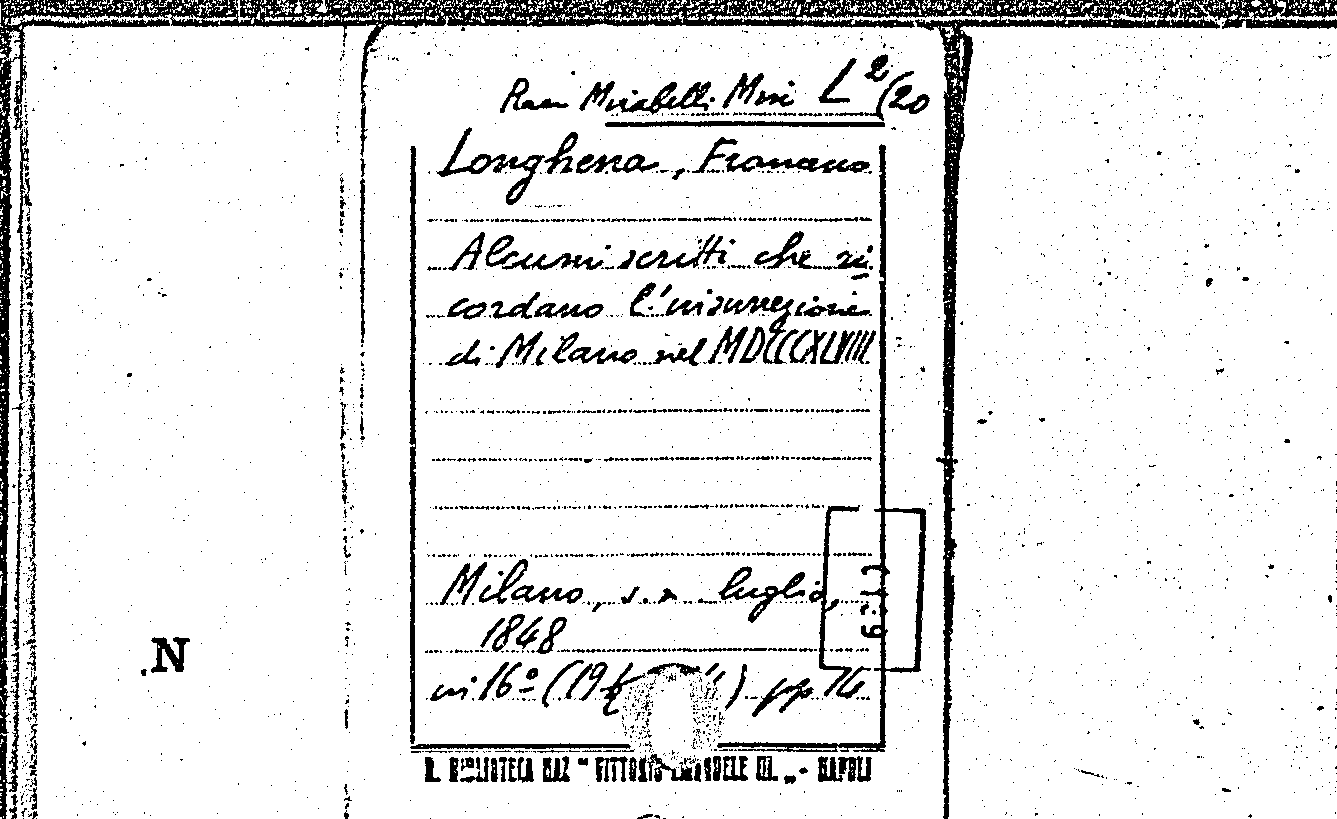 Mirabelli L²/20
Longhena, Francesco
Alcuni scritti che ri
cordano l'insurrezione
di Milano nel MDCCCXLVIII
Milano, luglio,
1848
in 16º (19 ) pp
N
R. BIBLIOTECA NAZ " VITTORIO EMANUELE III. „ - NAPOLI